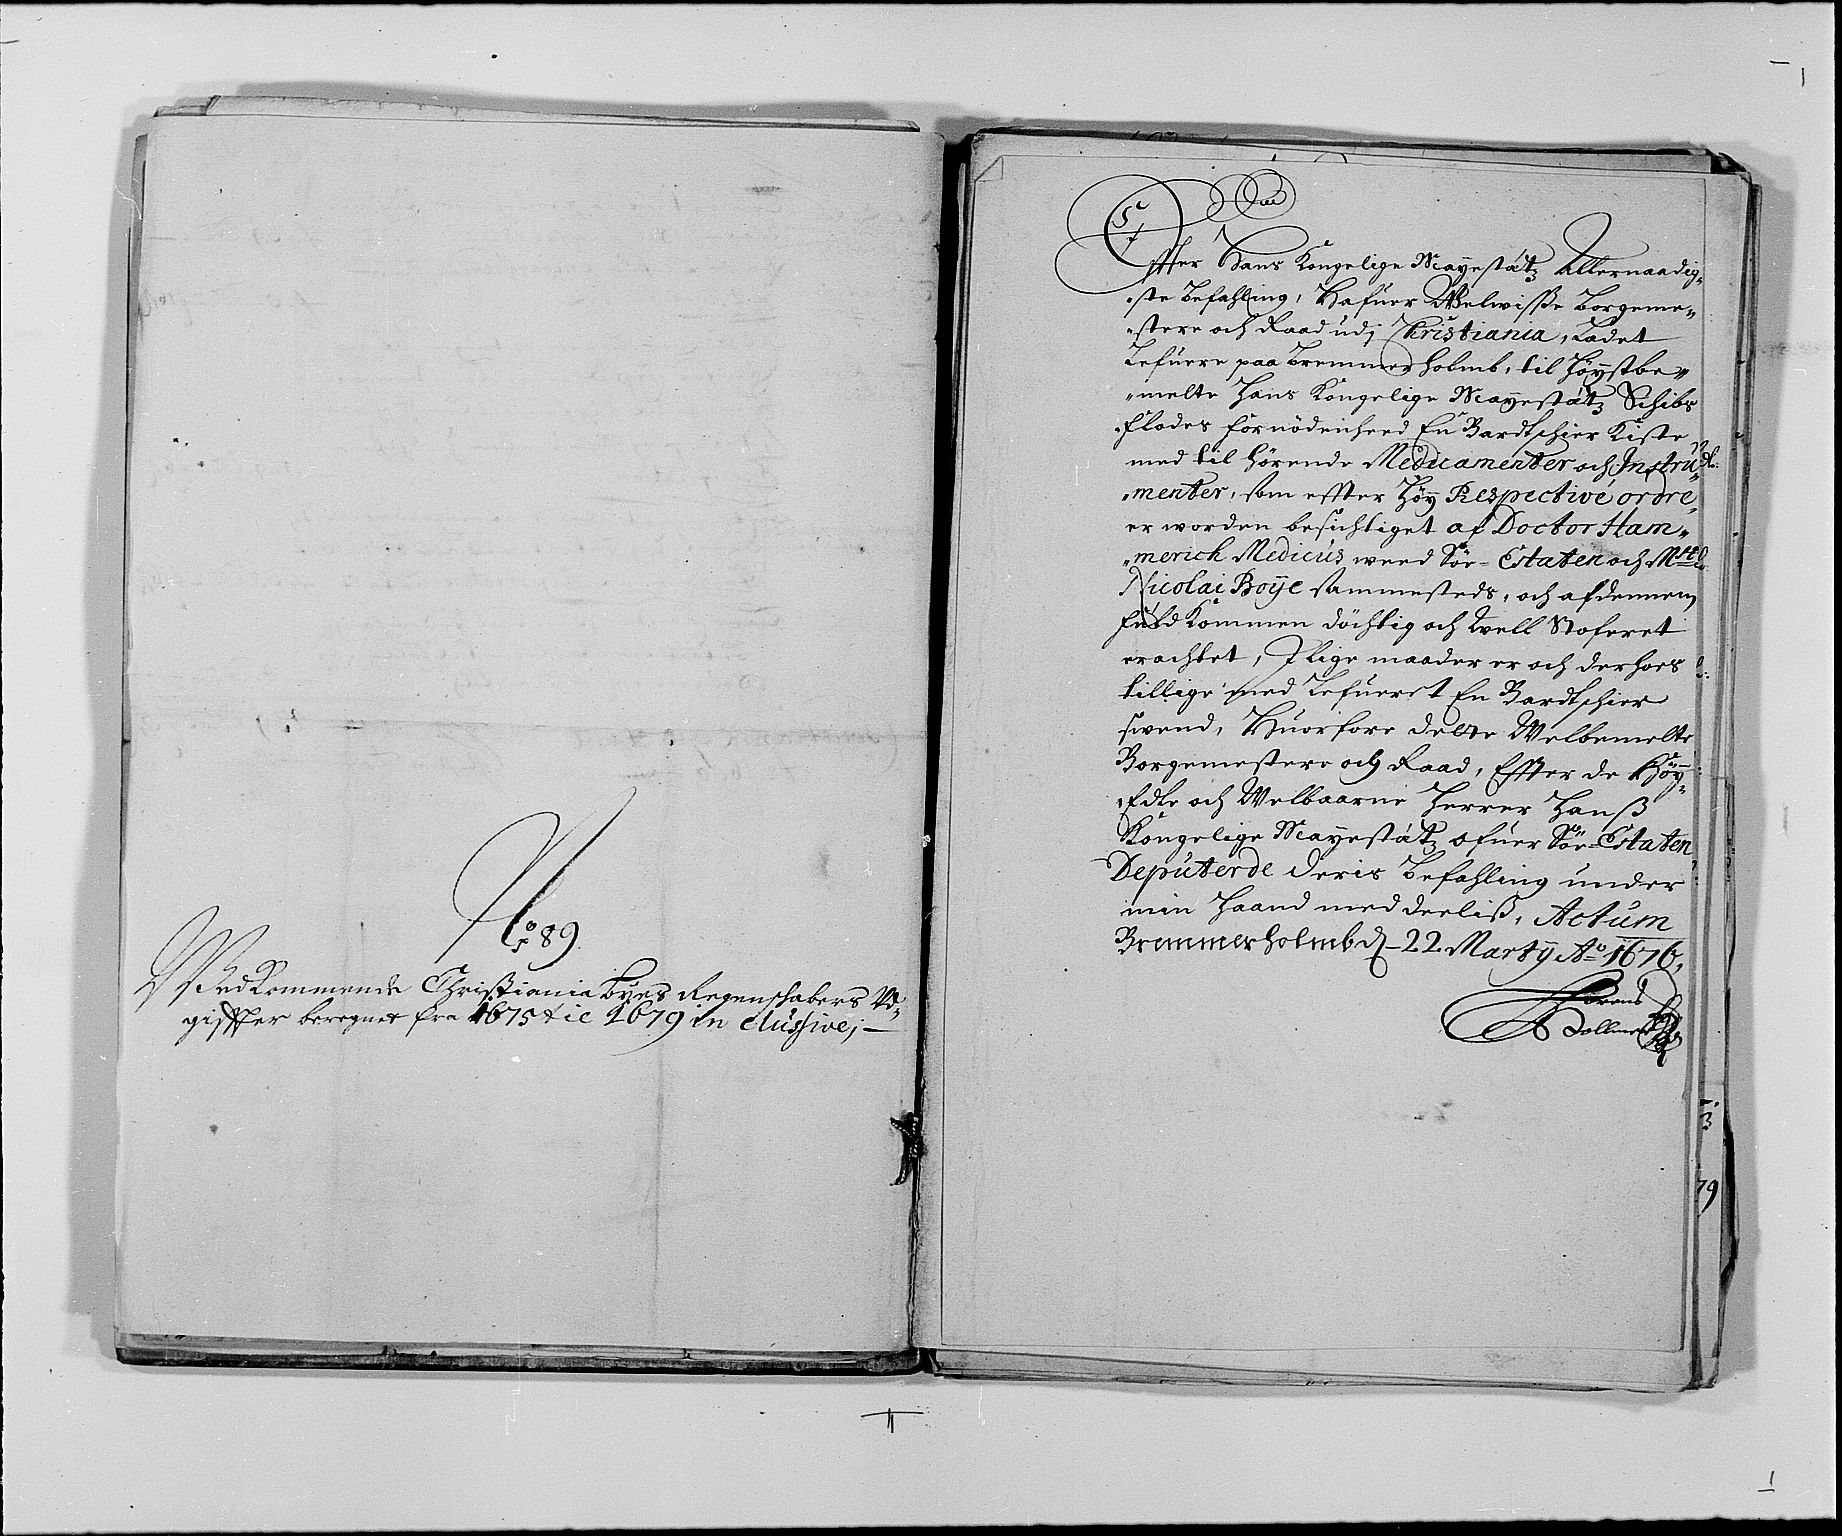 No 89.
Vedkommende Christiania Byes Regenschabers Vd-
gifffter beregnet fra 1675 til 1679 inclussive; —
Effter Hans Kongelige Mayestätz Allernaadig-
ste befahling, Hafuer Welwisse Borgeme-
stere och Raad udj Christiania, Ladet
Lefuere paa Bremmerholmb, til Höystbe-
melte Hans Kongelige Mayestätz Schibs
Flodes fornödenheed En Bardtschier Kiste
med til hörende Medicamenter och Instru-
menter, som effter Höy Respective ordre
er worden besichtiget af Doctor Ham-
merich Medicus weed Söe-Estaten och Mstr
Nicolai Boÿe sammesteds, och af dennem
fuldkommen döchtig och well Stoferet
erachtet, I lige maader er och derhoes
tillige med Lefueret En Bardtschier
swend, Huorfore dette Welbemelte
Borgemestere och Raad, Effter de Höy-
Edle och Welbaarne Herrer Hanß
Kongelige Mayestätz ofuer Söe-Estaten
Deputerde deris befahling under
min Haand meddeeliß, Actum
Bremmerholmb d. 22 Martÿ Ao 1676,
79